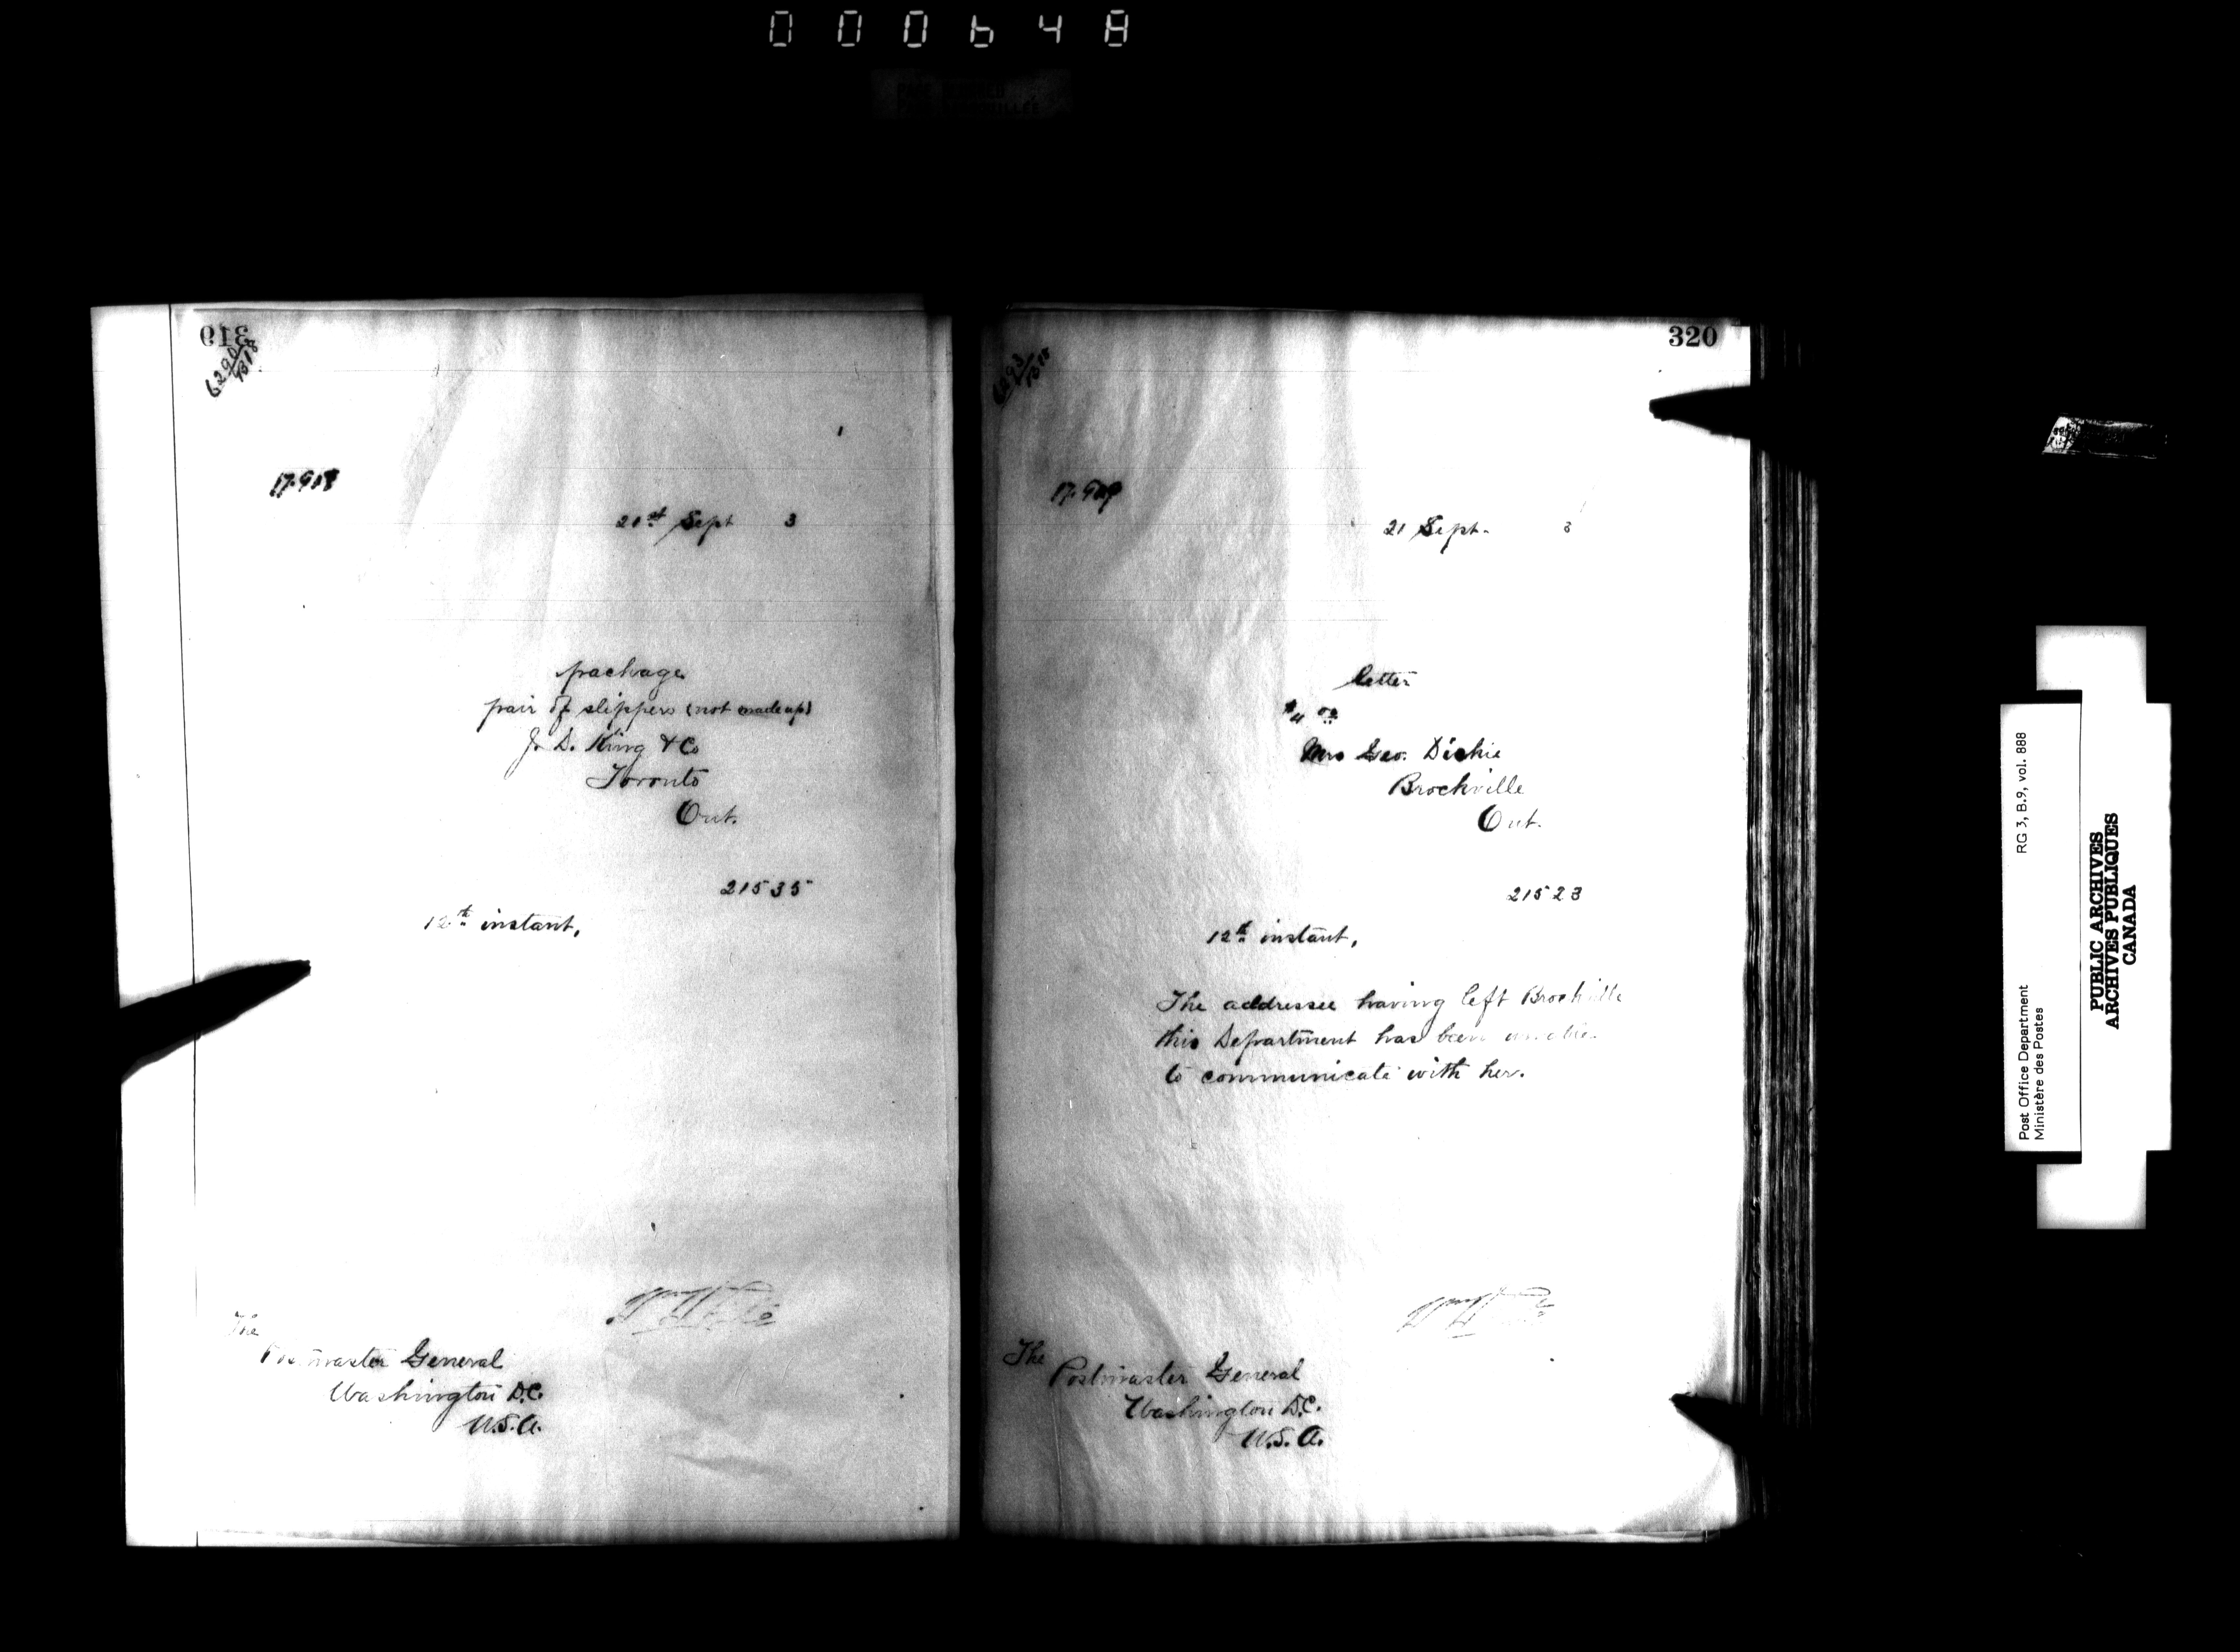 000648
319
17.918
21st Sept 3
package
pair of slippers (not made up)
J. D. King & Co
Toronto
Ont.
21535
12th instant,
The
Postmaster General
Washington D.C.
U.S.A.
320
21 Sept. 3
letter
$4 00
Mrs Geo. Dickie
Brockville
Ont.
21523
12th instant,
The addressee having left Brockville
this Department has been unable
to communicate with her.
The
Postmaster General
Washington D.C.
U.S.A.
Post Office Department RG 3, B.9, vol. 888
Ministère des Postes
PUBLIC ARCHIVES
ARCHIVES PUBLIQUES
CANADA